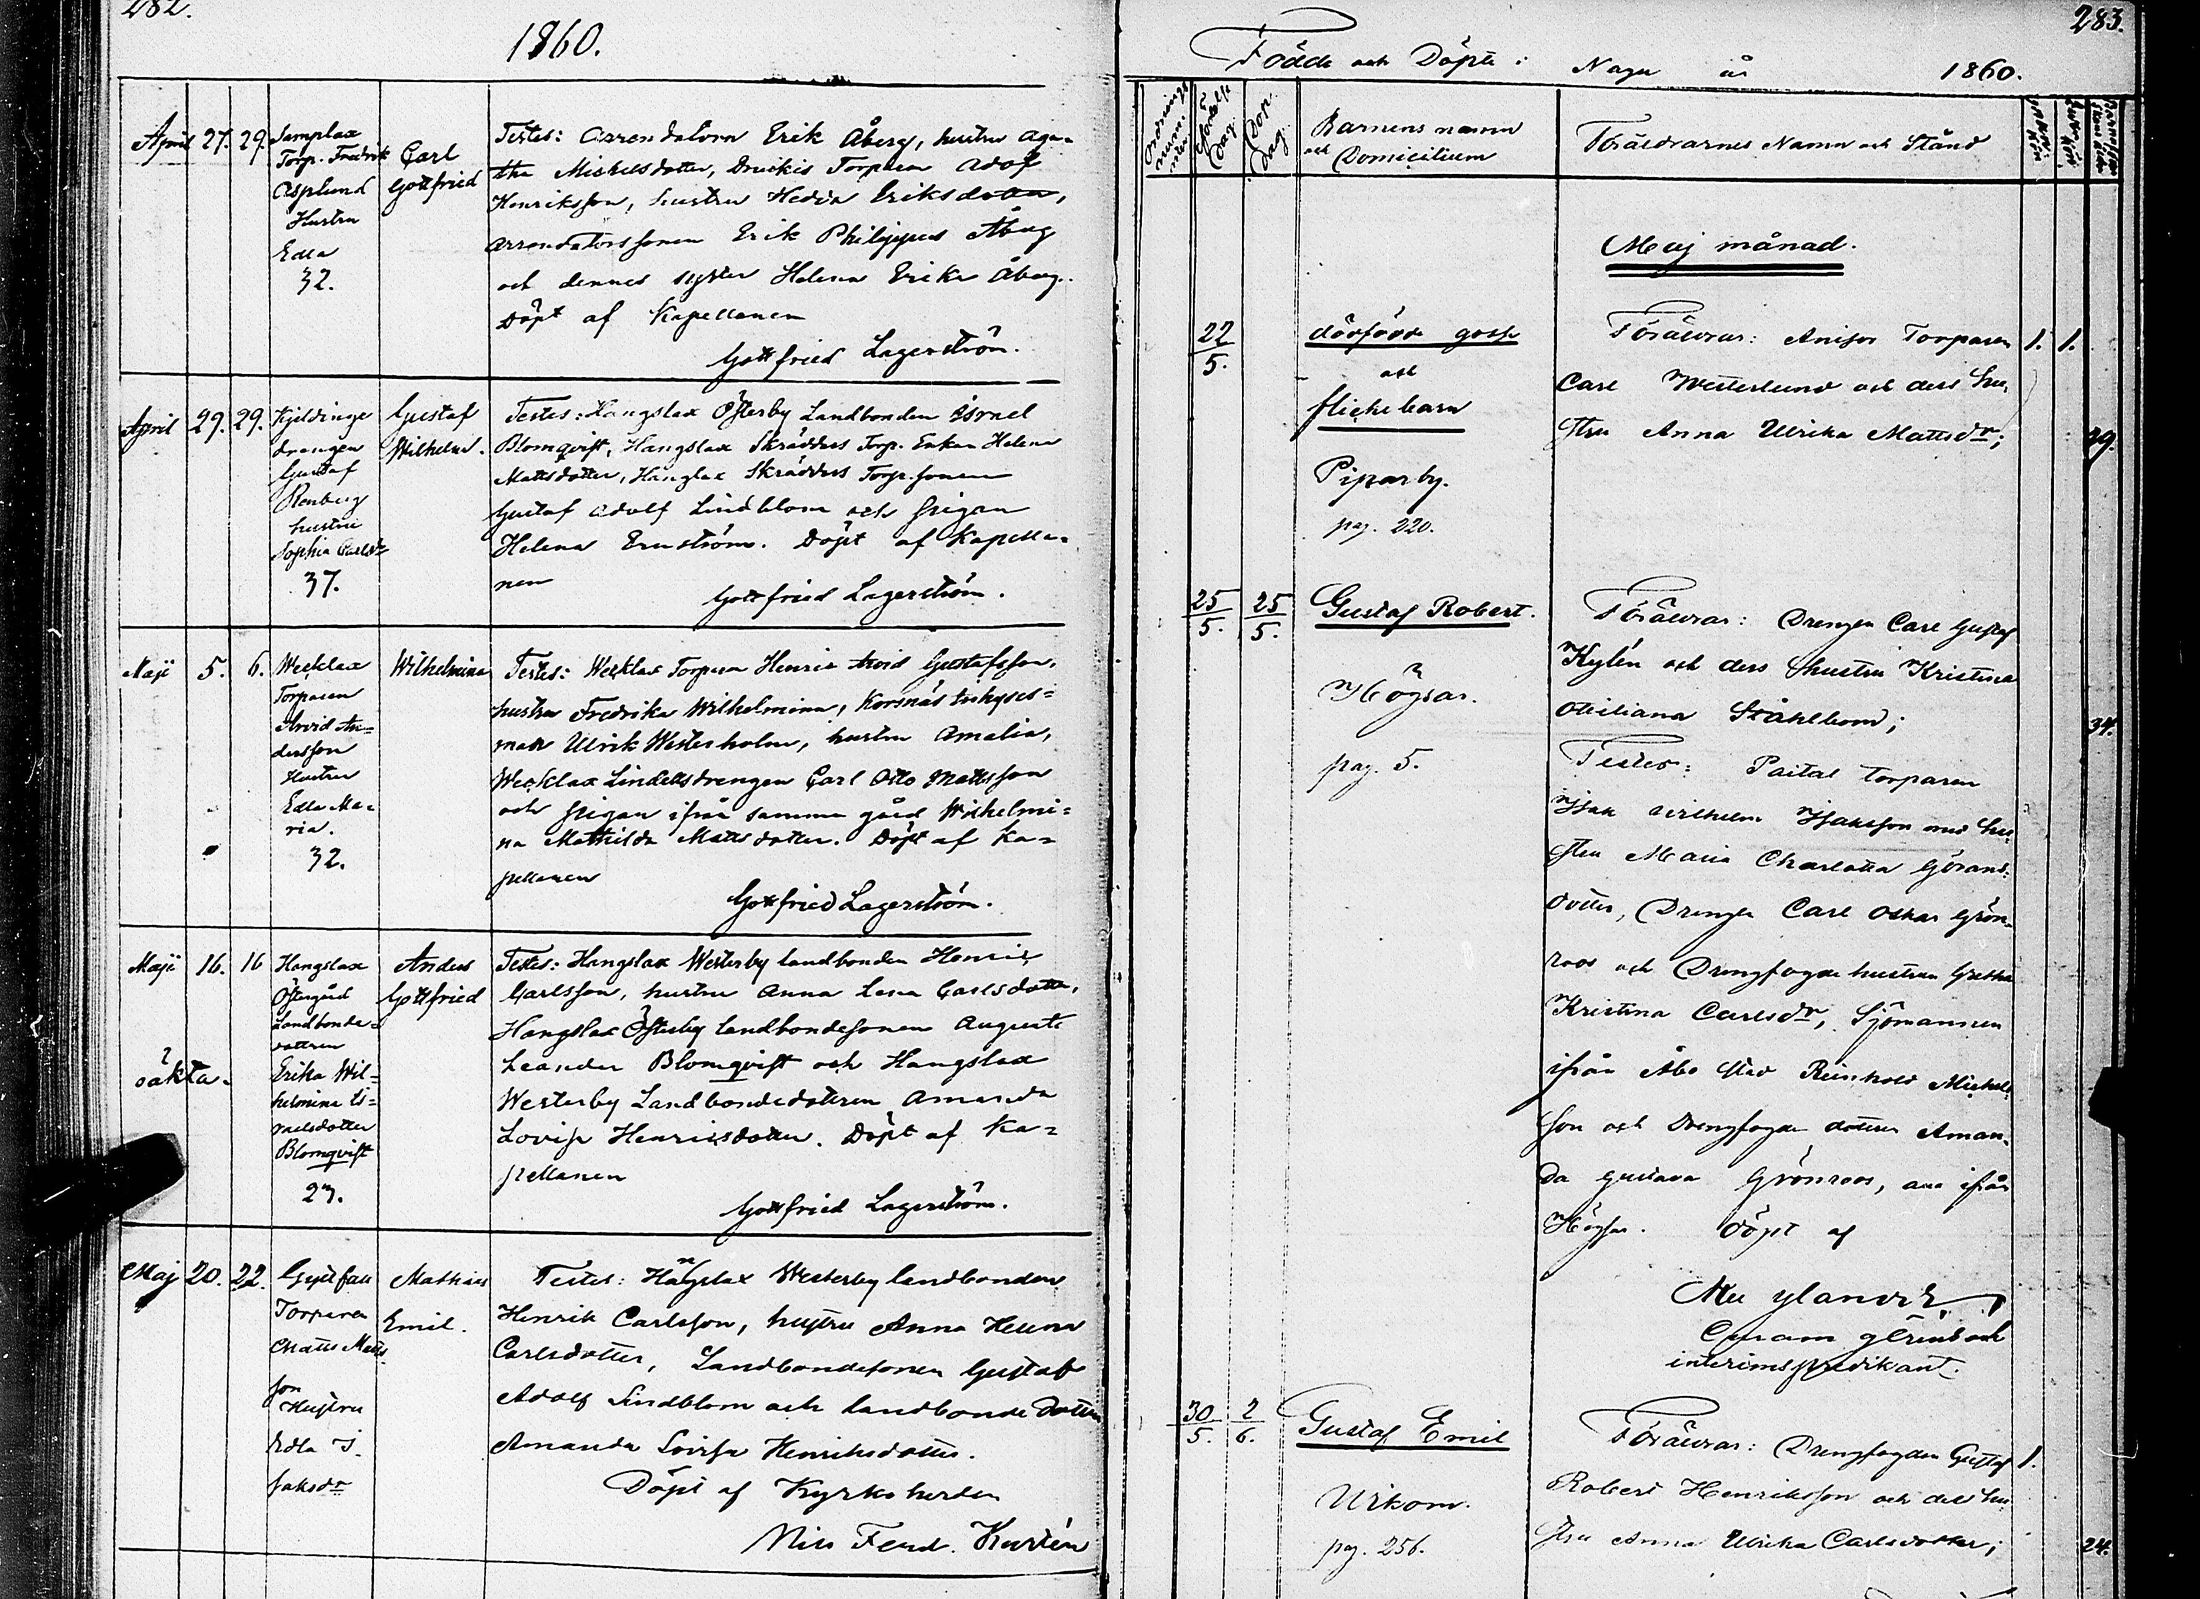 282.
1860.
April 27. 29. Samplax
Torp. Fredrik
Asplund
Hustru
Edla
32.
Carl
Gottfried
Testes: Arrendatorn Erik Åberg, hustru Aga-
tha Mickelsdotter, Torparen Adolf
Henriksson, hustru Hedda Eriksdotter,
Arrendatorssonen Erik Philippus Åberg
och dennes syster Helena Erika Åberg.
Döpt af Kapellanen
Gottfried Lagerström.
April 29. 29. Kjeldinge
drengen
Gustaf
Renberg
hustru
Sophia Carlsdr
37.
Gustaf
Wilhelm.
Testes: Hangslax Österby Landbonden Israel
Blomqvist, Hangslax Skräddars Torp. Enkan Helena
Mattsdotter, Hangslax Skräddars Torp. sonen
Gustaf Adolf Lindblom och pigan
Helena Ernström. Döpt af Kapella-
nen
Gottfried Lagerström.
Maji 5. 6. Wecklax
Torparen
Arvid An-
dersson
Hustru
Edla Ma-
ria.
32.
Wilhelmina
Testes: Wecklax Torparen Henric Arvid Gustafsson,
hustru Fredrika Wilhelmina, Korsnäs Inhyses-
man Ulrik Westerholm, hustru Amalia,
Wecklax Lindellsdrengen Carl Otto Mattsson
och pigan ifrån samma gård Wilhelmi-
na Mathilda Mattsdotter. Döpt af Ka-
pellanen
Gottfried Lagerström.
Maji 16. 16 Hangslax
Östergård
Landbonde-
dottren
Erika Wil-
helmina Is-
raelsdotter
Blomqvist
23.
oäkta.
Anders
Gottfried
Testes: Hangslax Westerby landbonden Henric
Carlsson, hustru Anna Lena Carlsdotter,
Hangslax Österby landbondesonen August
Leander Blomqvist och Hangslax
Westerby Landbondedottren Amanda
Lovisa Henricsdotter. Döpt af Ka-
pellanen
Gottfried Lagerström.
Maj 20. 22.
Torparen
Matts Matts-
son
Hustru
Edla I-
saksdr
Mathias
Emil.
Testes: Hangslax Westerby landbonden
Henrik Carlsson, hustru Anna Helena
Carlsdotter, Landbondesonen Gustaf
Adolf Lindblom och landbonde dottren
Amanda Lovisa Henriksdotter.
Döpt af Kyrkoherden
Nils Ferd. Kurtén
283.
Födde och Döpte i Nagu år 1860.
Ordnings nummer
Födelse dag.
Dop. dag.
Barnens namn
och Domicilium
Föräldrarnes Namn och Stånd
Maj månad.
22/5.
dödfödd gosse
och
flickebarn
Piparby.
pag. 220.
Föräldrar: Anisor Torparen 1. 1.
Carl Westerlund och dess hu-
stru Anna Ulrika Mattsdr; 29.
25/5. 25/5.
Gustaf Robert.
Högsar.
pag. 5.
Föräldrar: Drengen Carl Gustaf
Kylén och dess hustru Kristina
Otiliana Ståhlbom; 34.
Testes: Paital torparen
Isak Wilhelm Isaksson med hu-
stru Maria Charlotta Görans-
dotter, Drengen Carl Oskar Grön-
roos och Drengfogde hustrun Gretha
Kristina Carlsdr, Sjömannen
ifrån Åbo stad Reinhold Mickels-
son och Drengfogde dottren Aman-
da Gustava Grönroos, alla ifrån
Högsar. Döpt af
interimspredikant.
30/5. 2/6.
Gustaf Emil
Utkom.
pag. 256.
Föräldrar: Drengfogden Gustaf 1.
Robert Henriksson och dess hu-
stru Anna Ulrika Carlsdotter; 24.